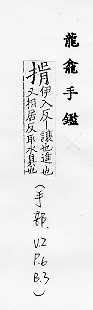 龍龕手鑑
揖
伊入反讓也進也
又指居反取水具也
(手部.V.2
P.6
B.3)